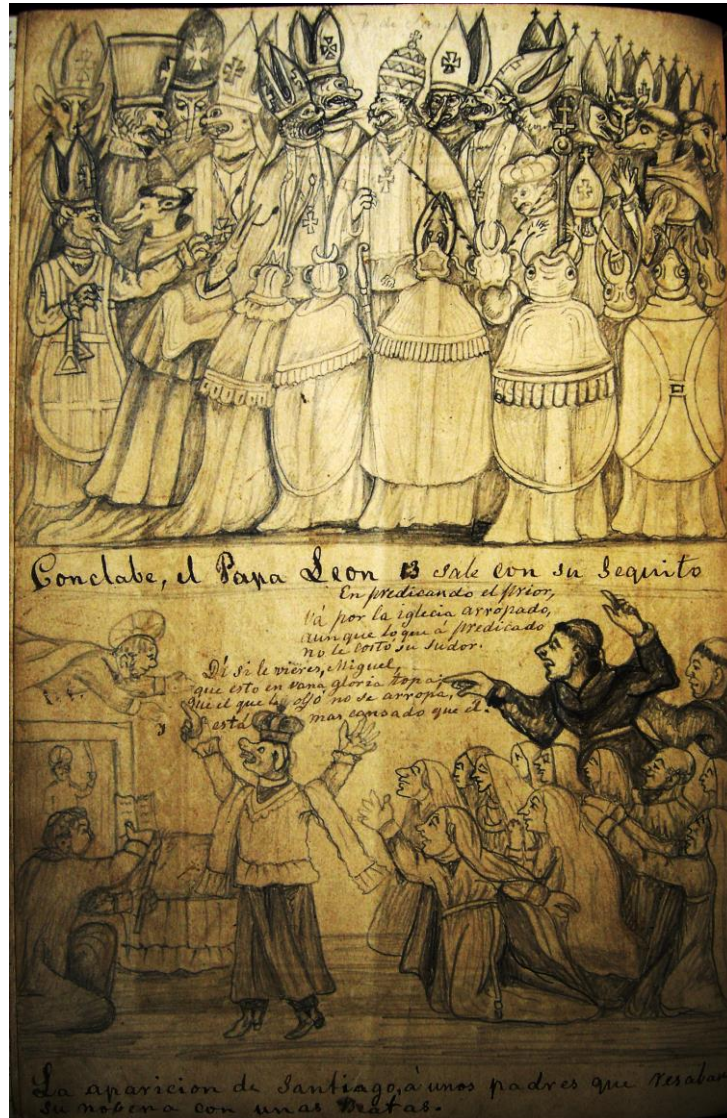 Conclabe, el Papa Leon 13 sale con su Sequito
En predicando el prior,
vá por la iglecia arropado,
aunque lo que á predicado
no le costo su sudor.
Dí si le vieres, Miguel,
que esto en vana gloria topa,
que el que le oyó no se arropa,
y está mas cansado que el.
La aparicion de Santiago, á unos padres que resaban
su nobena con unas Beatas.